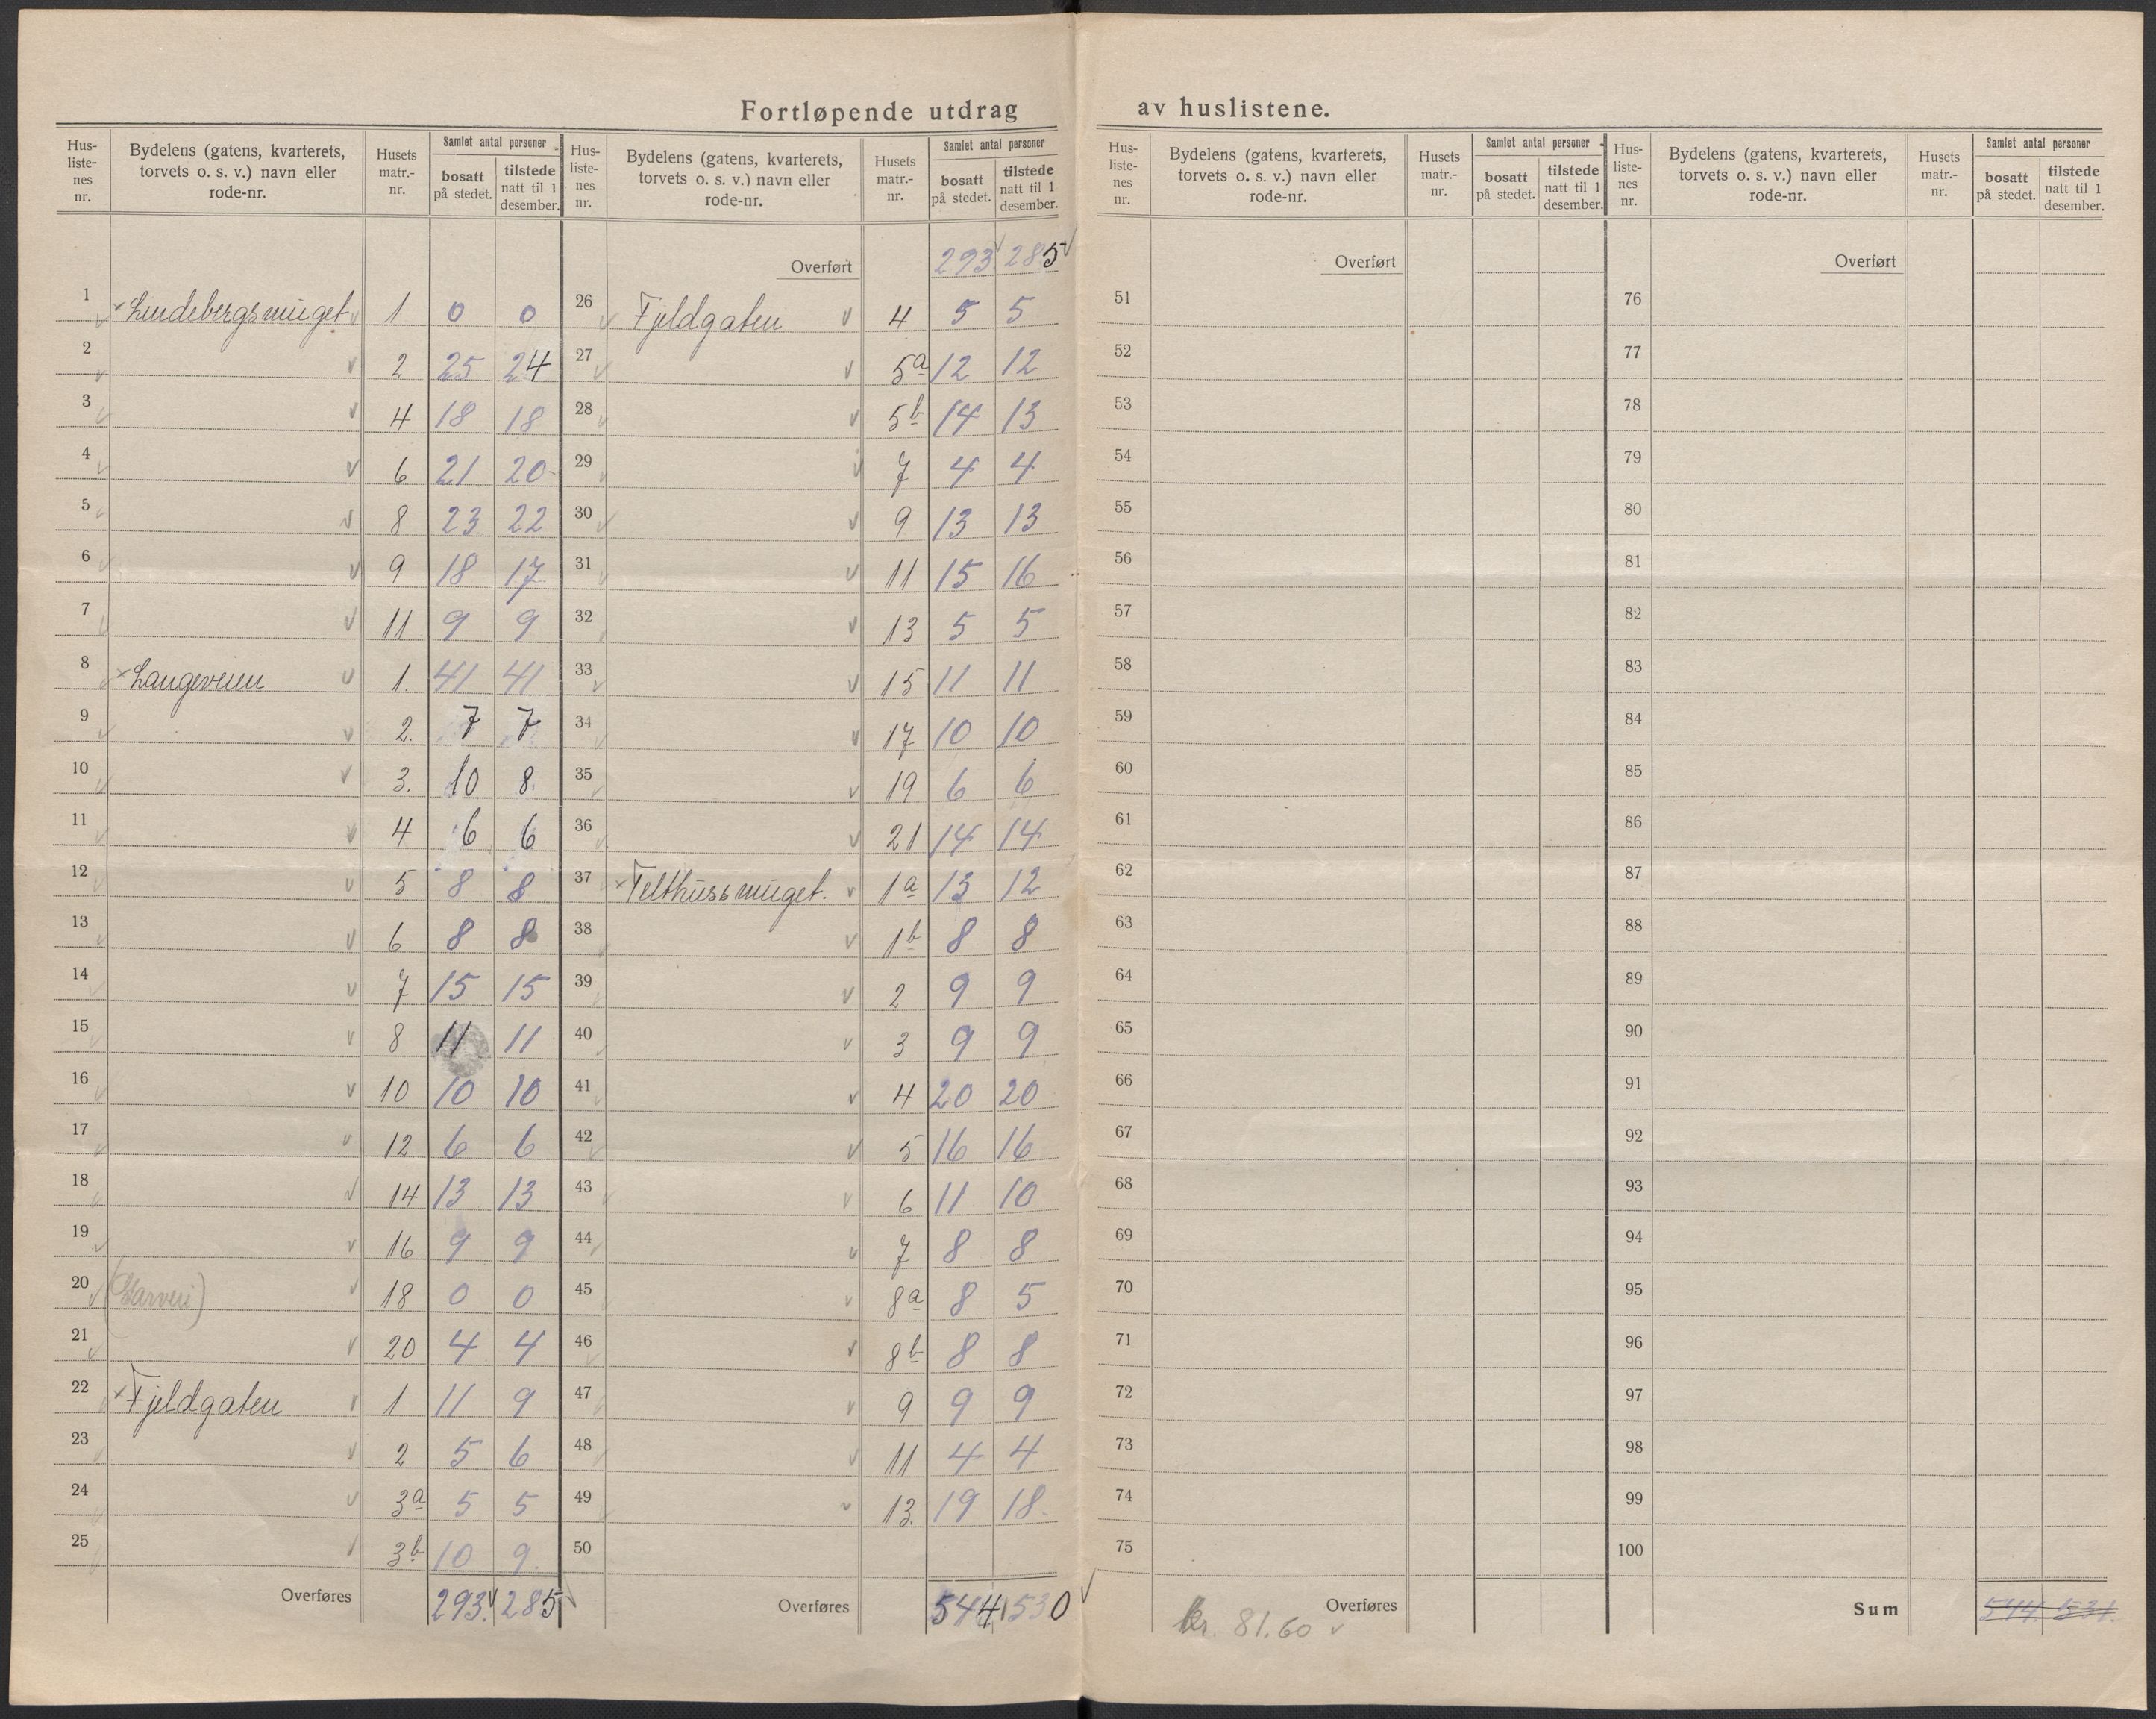 Fortløpende utdrag av huslistene.
Hus-liste-nes nr. | Bydelens (gatens, kvarterets, torvets o. s. v.) navn eller rode-nr. | Husets matr.-nr. | Samlet antal personer bosatt på stedet. | tilstede natt til 1 desember.
1 Lindebergsmuget 1 0 0
2 2 25 24
3 4 18 18
4 6 21 20
5 8 23 22
6 9 18 17
7 11 9 9
8 Langeveien 1. 41 41
9 2. 7 7
10 3. 10 8
11 4 6 6
12 5 8 8
13 6 8 8
14 7 15 15
15 8 11 11
16 10 10 10
17 12 6 6
18 14 13 13
19 16 9 9
20 (Garveri) 18 0 0
21 20 4 4
22 Fjeldgaten 1 11 9
23 2 5 6
24 3a 5 5
25 3b 10 9
Overføres 293 285
Hus-liste-nes nr. | Bydelens (gatens, kvarterets, torvets o. s. v.) navn eller rode-nr. | Husets matr.-nr. | Samlet antal personer bosatt på stedet. | tilstede natt til 1 desember.
Overført 293 285
26 Fjeldgaten 4 5 5
27 5a 12 12
28 5b 14 13
29 7 4 4
30 9 13 13
31 11 15 16
32 13 5 5
33 15 11 11
34 17 10 10
35 19 6 6
36 21 14 14
37 Telthussmuget. 1a 13 12
38 1b 8 8
39 2 9 9
40 3 9 9
41 4 20 20
42 5 16 16
43 6 11 10
44 7 8 8
45 8a 8 5
46 8b 8 8
47 9 9 9
48 11 4 4
49 13. 19 18
50
Overføres 544 530
Hus-liste-nes nr. | Bydelens (gatens, kvarterets, torvets o. s. v.) navn eller rode-nr. | Husets matr.-nr. | Samlet antal personer bosatt på stedet. | tilstede natt til 1 desember.
Overført
51
52
53
54
55
56
57
58
59
60
61
62
63
64
65
66
67
68
69
70
71
72
73
74
75
Overføres
kr. 81.60
Hus-liste-nes nr. | Bydelens (gatens, kvarterets, torvets o. s. v.) navn eller rode-nr. | Husets matr.-nr. | Samlet antal personer bosatt på stedet. | tilstede natt til 1 desember.
Overført
76
77
78
79
80
81
82
83
84
85
86
87
88
89
90
91
92
93
94
95
96
97
98
99
100
Sum 544 531.